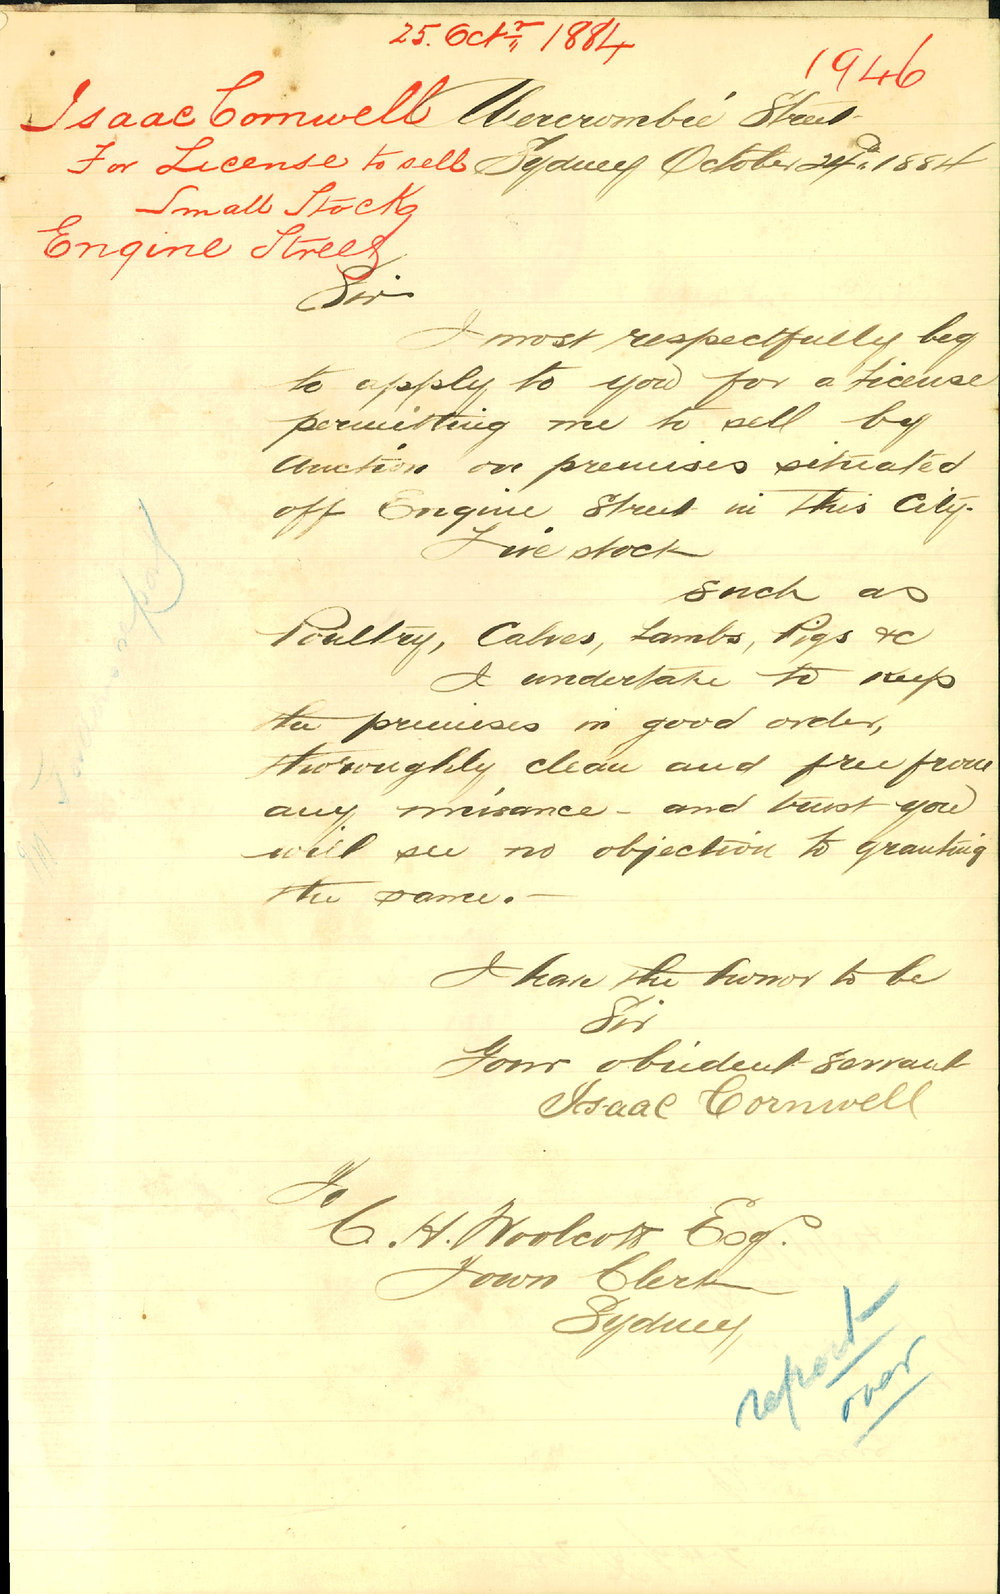 25. Octr 1884
1946
Isaac Cornwell
For License to sell
Small Stock
Engine Street
Abercrombie Street
Sydney October 24th 1884
Sir
I most respectfully beg
to apply to you for a License
permitting me to sell by
Auction on premises situated
off Engine Street in this City.
Live stock
such as
Poultry, Calves, Lambs, Pigs &c
I undertake to keep
the premises in good order,
thoroughly clean and free from
any nuisance - and trust you
will see no objection to granting
the same. -
I have the honor to be
Sir
Your obedient servant
Isaac Cornwell
To
C. H. Woolcott Esq.
Town Clerk
Sydney
report
over